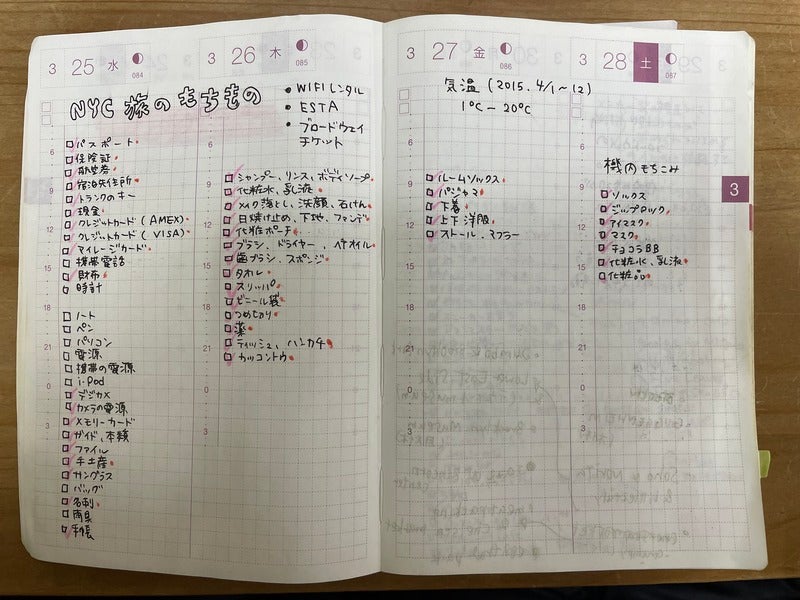 3 25 水 084
NYC 旅のもちもの
パスポート
保険証
航空券
宿泊先住所
トランクのキー
現金
クレジットカード (AMEX)
クレジットカード (VISA)
マイレージカード
携帯電話
財布
時計
ノート
ペン
パソコン
電源
携帯の電源
i-Pod
デジカメ
カメラの電源
メモリーカード
ガイド、本類
ファイル
手土産
サングラス
バッグ
名刺
雨具
手帳
6
9
12
15
18
21
0
3
3 26 木 085
• WIFIレンタル
• ESTA
• ブロードウェイ
チケット
シャンプー、リンス、ボディソープ
化粧水、乳液
メイク落とし、洗顔、石けん
日焼け止め、下地、ファンデ
化粧ポーチ
ブラシ、ドライヤー、ヘアオイル
歯ブラシ、スポンジ
タオル
スリッパ
ビニール袋
つめきり
薬
ティッシュ、ハンカチ
カッコントウ
6
9
12
15
18
21
0
3
3 27 金 086
気温 (2015. 4/1〜12)
1℃ － 20℃
ルームソックス
パジャマ
下着
上下洋服
ストール、マフラー
6
9
12
15
18
21
0
3
3 28 土 087
機内もちこみ
ソックス
ジップロック
アイマスク
マスク
チョコラBB
化粧水、乳液
化粧品
6
9
12
15
18
21
0
3
3